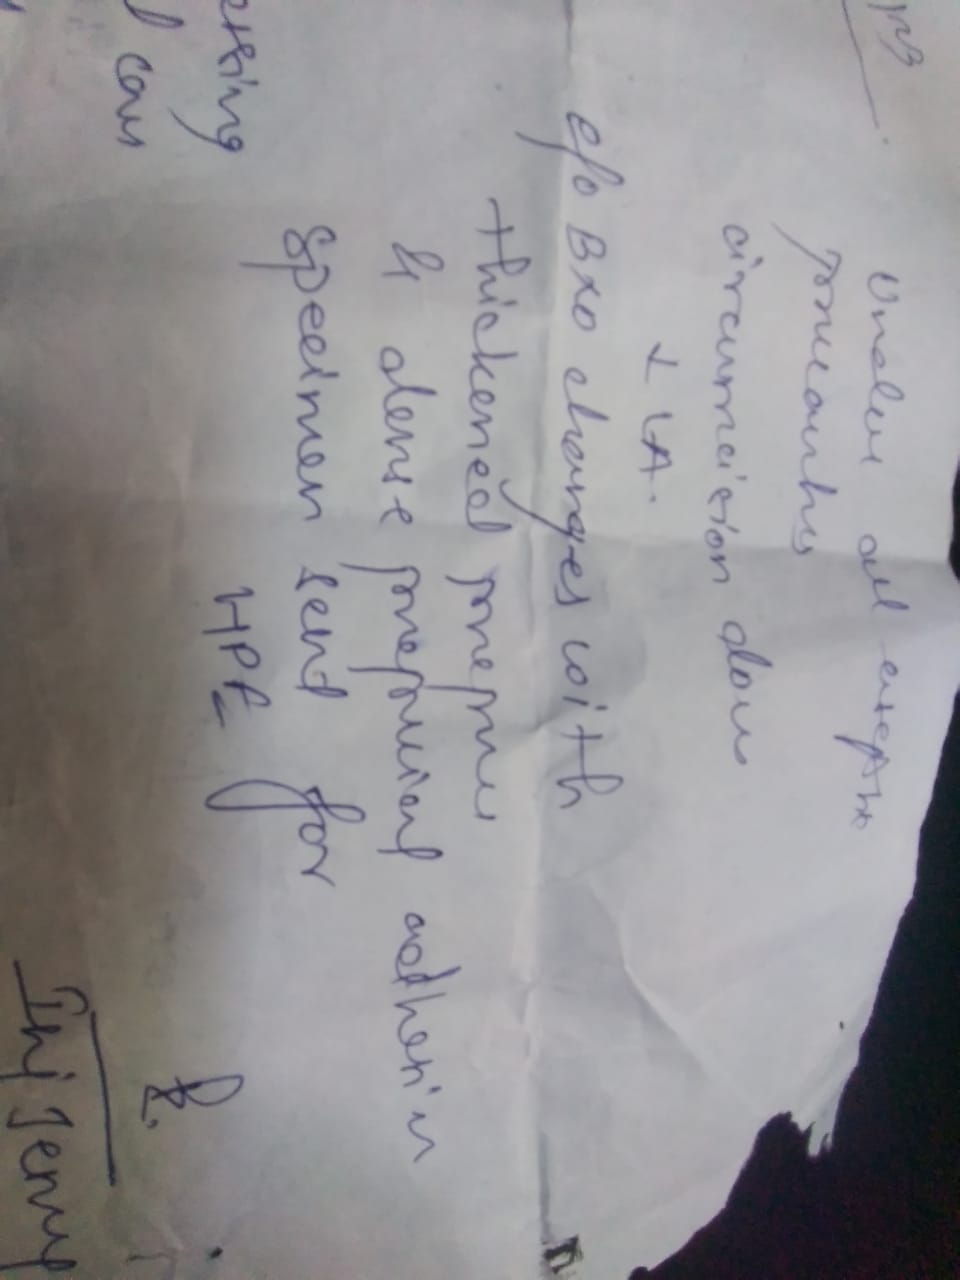 Under all aseptic
precautions
circumcision done
+ LA.
e/o BXO changes with
thickened prepuce
& dense preputial adhesin
specimen sent for
HPE